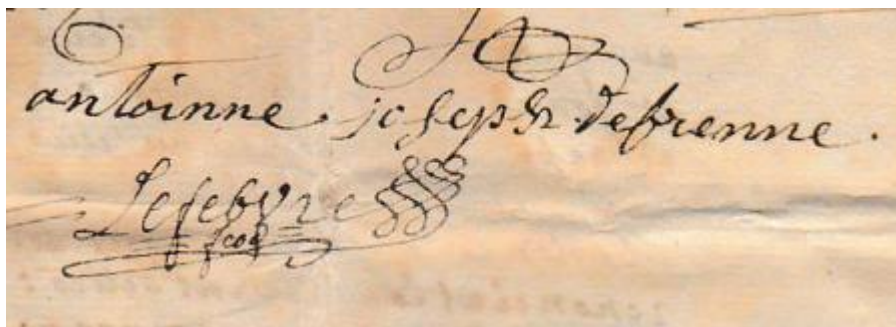 antoinne joseph defrenne.
Lefebvre